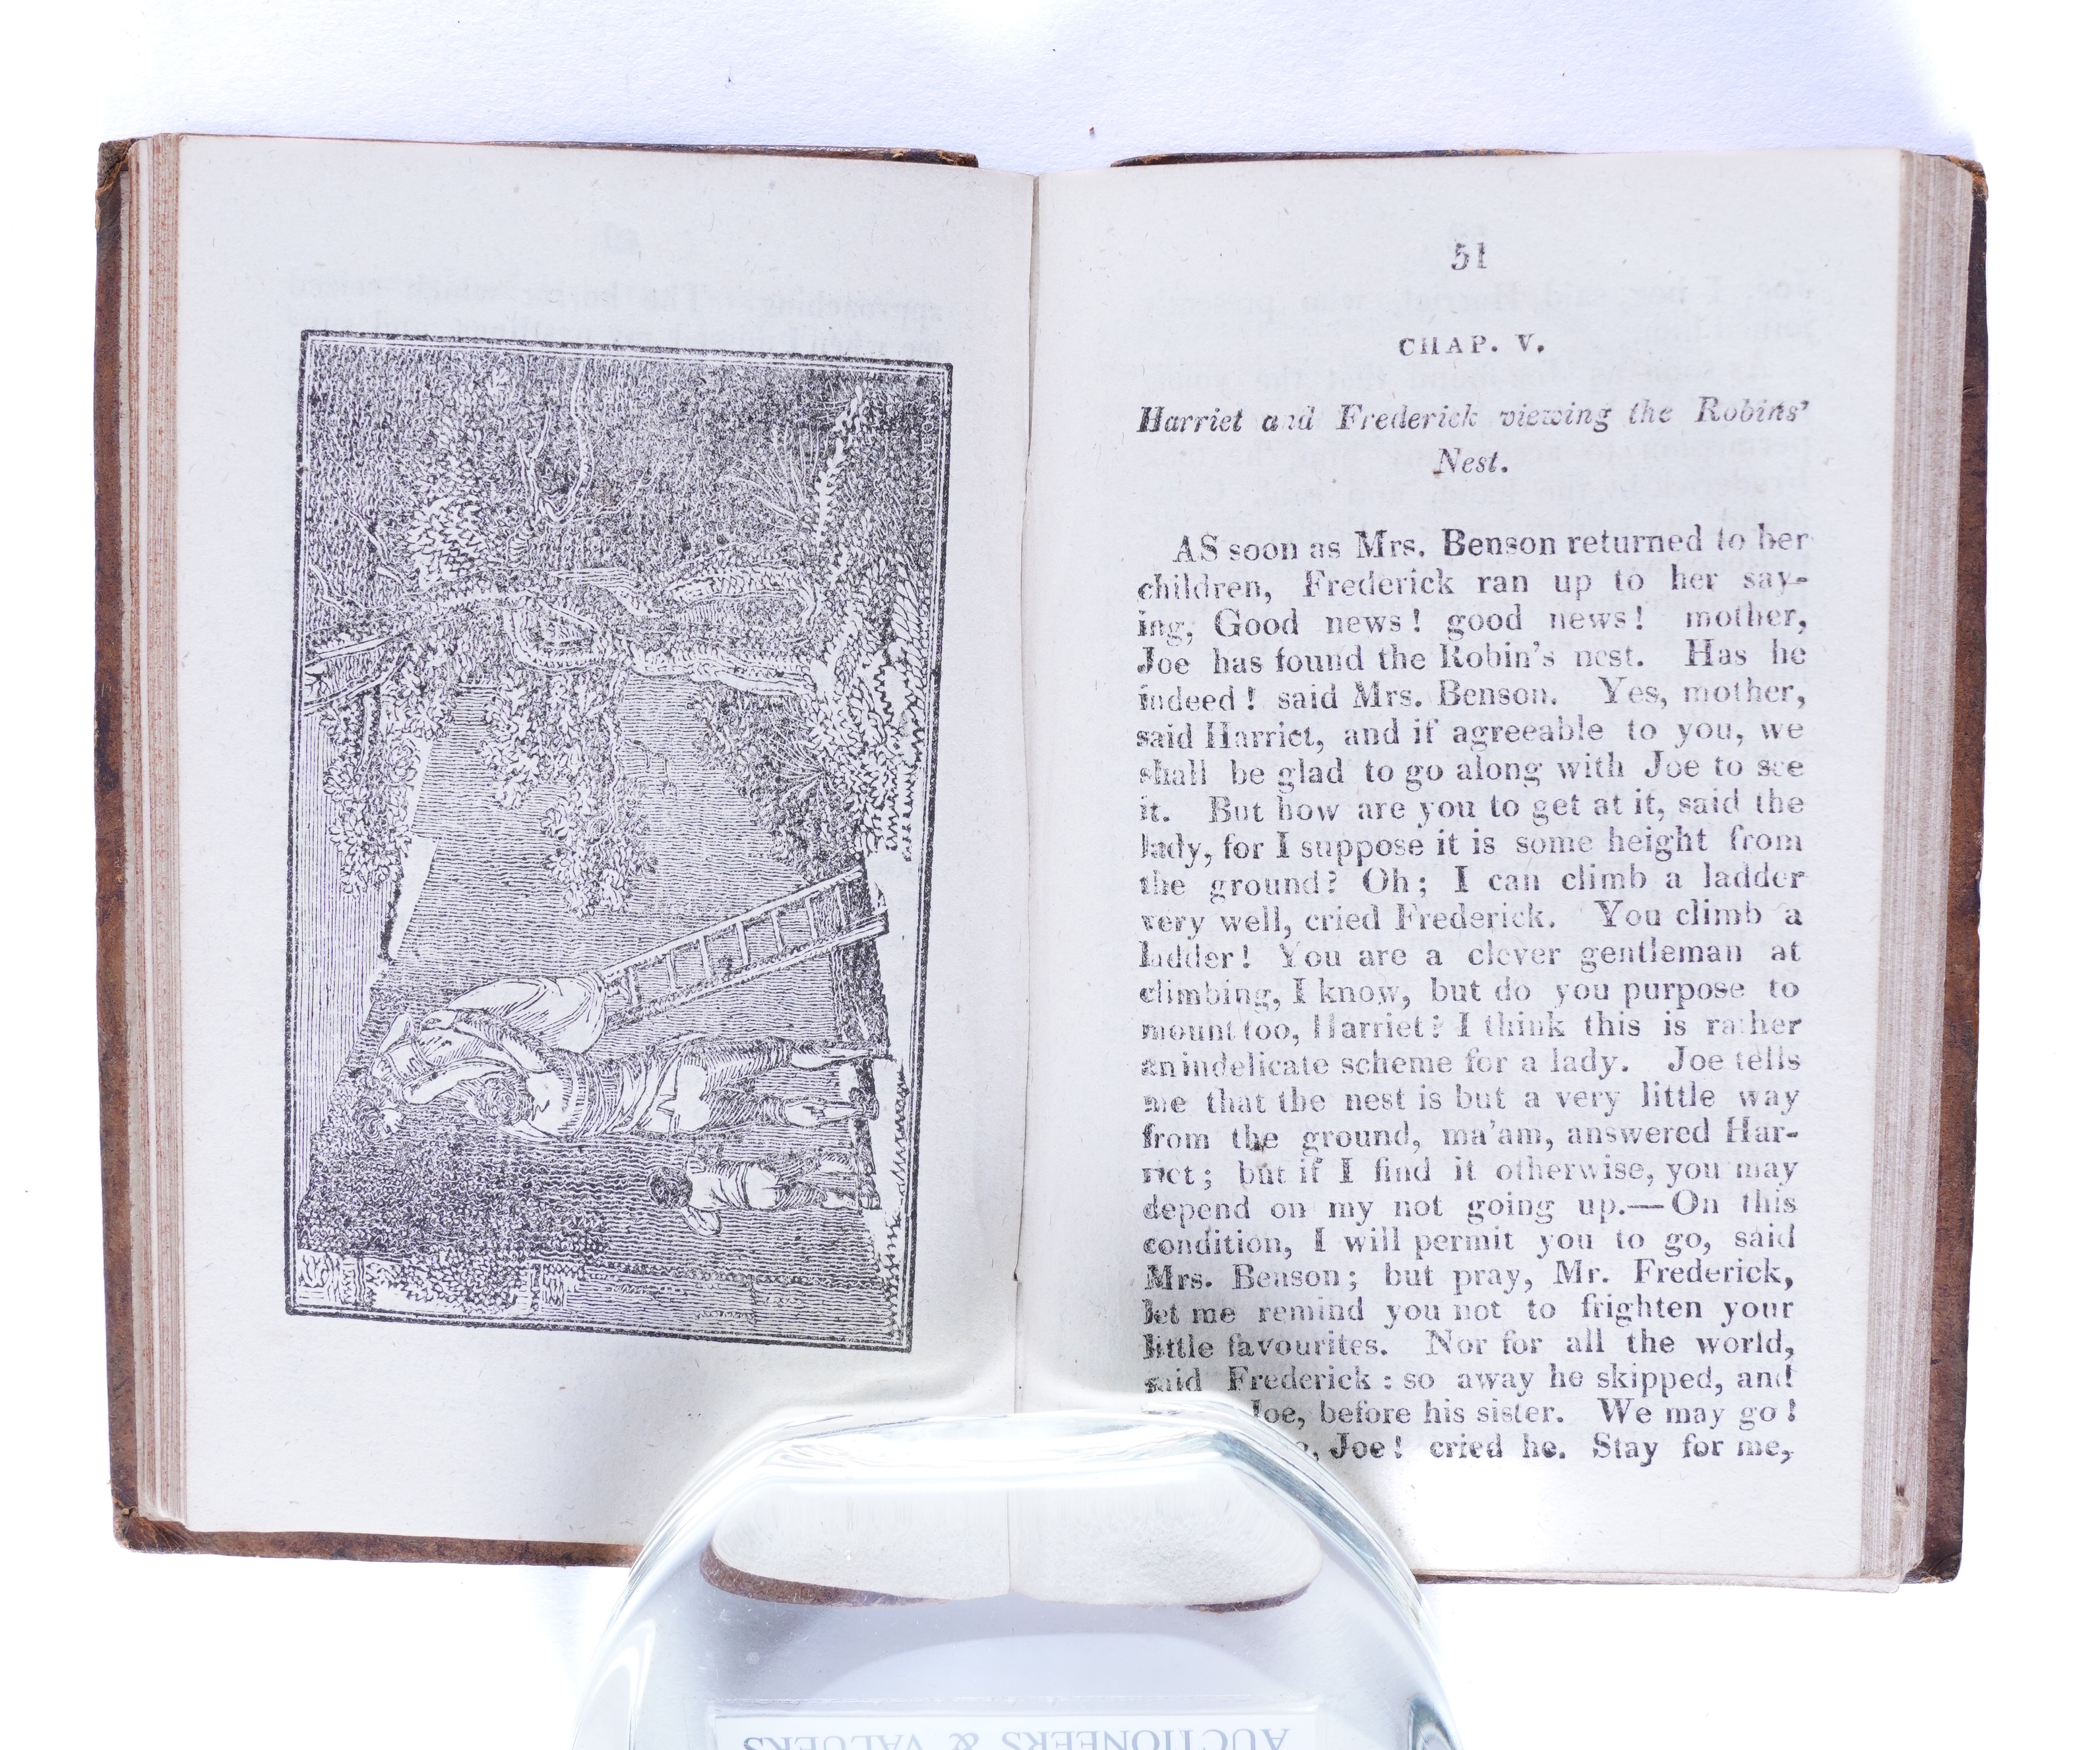 51
CHAP. V.
Harriet and Frederick viewing the Robins'
Nest.
AS soon as Mrs. Benson returned to her
children, Frederick ran up to her say-
ing, Good news! good news! mother,
Joe has found the Robin's nest. Has he
indeed! said Mrs. Benson. Yes, mother,
said Harriet, and if agreeable to you, we
shall be glad to go along with Joe to see
it. But how are you to get at it, said the
lady, for I suppose it is some height from
the ground? Oh; I can climb a ladder
very well, cried Frederick. You climb a
ladder! You are a clever gentleman at
climbing, I know, but do you purpose to
mount too, Harriet? I think this is rather
an indelicate scheme for a lady. Joe tells
me that the nest is but a very little way
from the ground, ma'am, answered Har-
riet; but if I find it otherwise, you may
depend on my not going up.—On this
condition, I will permit you to go, said
Mrs. Benson; but pray, Mr. Frederick,
let me remind you not to frighten your
little favourites. Nor for all the world,
said Frederick: so away he skipped, and
Joe, before his sister. We may go!
Joe! cried he. Stay for me,
AUCTIONEERS & VALUERS